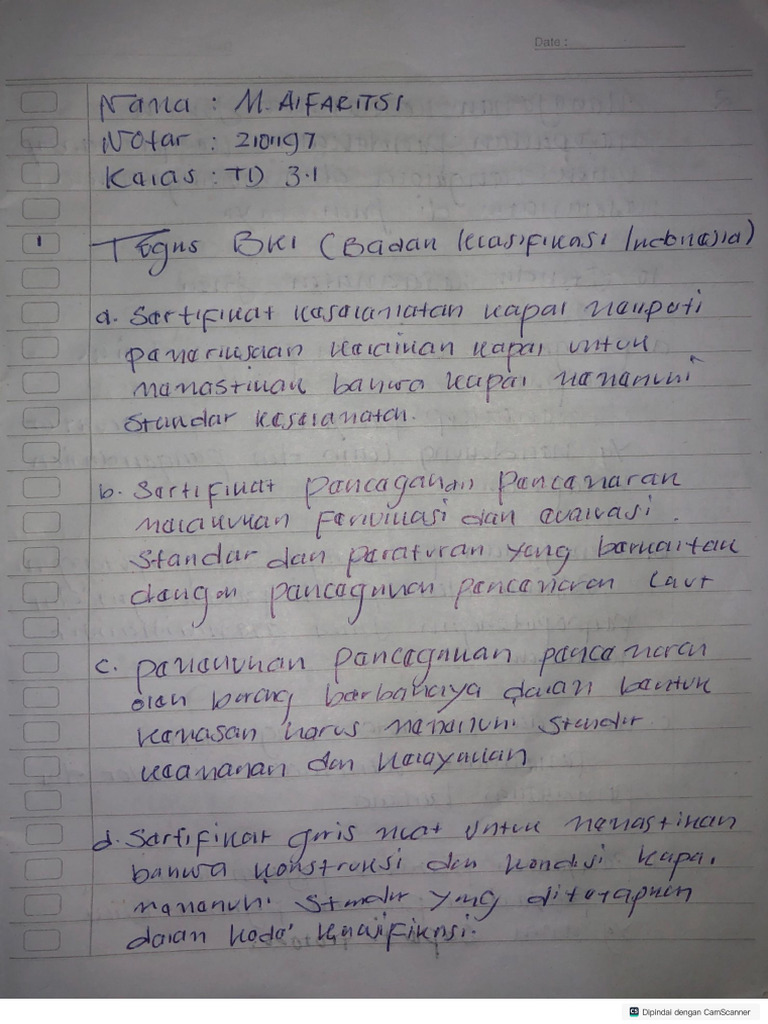 Date :
Nama : M. AlFARITSI
Notar : 2101197
Kelas : TD 3.1
1 Tugas BKI (Badan Klasifikasi Indonesia)
a. Sertifikat keselamatan kapal meliputi
pemeriksaan kelaikan kapal untuk
memastikan bahwa kapal memenuhi
standar keselamatan.
b. Sertifikat pencegahan pencemaran
melakukan dan evaluasi
standar dan peraturan yang berkaitan
dengan pencegahan pencemaran laut
c. pencegahan pencemaran
oleh barang berbahaya dalam bentuk
kemasan harus memenuhi standar
keamanan dan kelayakan
d. Sertifikat garis muat untuk memastikan
bahwa konstruksi dan kondisi kapal
memenuhi standar yang diterapkan
dalam kode klasifikasi.
CS Dipindai dengan CamScanner